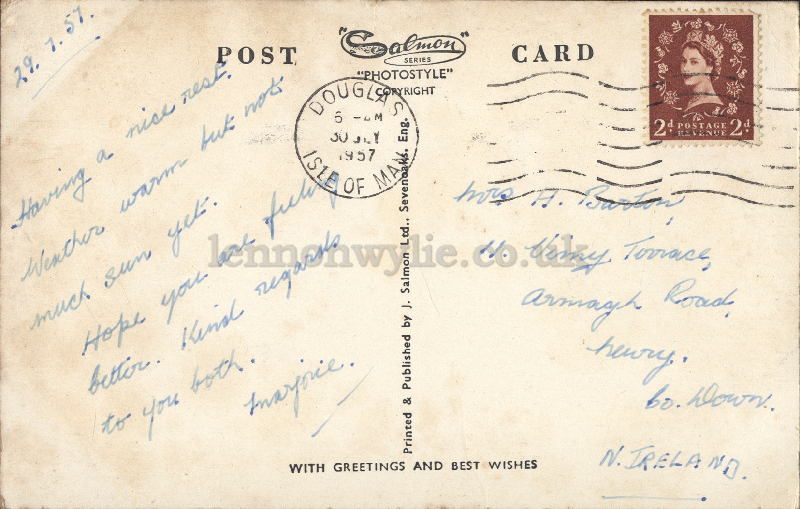 29.7.57.
POST
"Salmon"
SERIES
"PHOTOSTYLE"
COPYRIGHT
CARD
2d POSTAGE 2d
REVENUE
DOUGLAS
6 - AM
30 JLY
1957
ISLE OF MAN
Having a nice rest.
Weather warm but not
much sun yet.
Hope you are feeling
better. Kind regards
to you both.
Marjorie.
Printed & Published by J. Salmon Ltd., Sevenoaks, Eng.
Mrs. H. Burton,
11. Vimy Terrace,
Armagh Road,
Newry.
Co. Down.
N. IRELAND.
WITH GREETINGS AND BEST WISHES
lennonwylie.co.uk